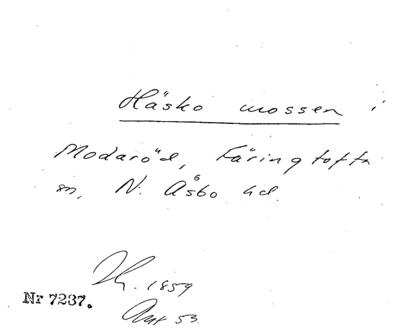 Häsko mossen i
Modaröd, Färingtofta
sn, N. Åsbo hd.
1859
Nr 7237.
53